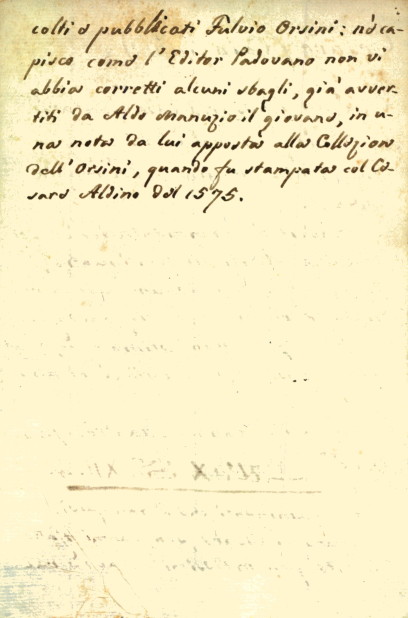 colti e pubblicati Fulvio Orsini: nè ca-
pisco come l'Editor Padovano non vi
abbia corretti alcuni sbagli, già avver-
titi da Aldo Manuzio il giovane, in u-
na nota da lui apposta alla Collezione
dell'Orsini, quando fu stampata col Ce-
sare Aldino del 1575.